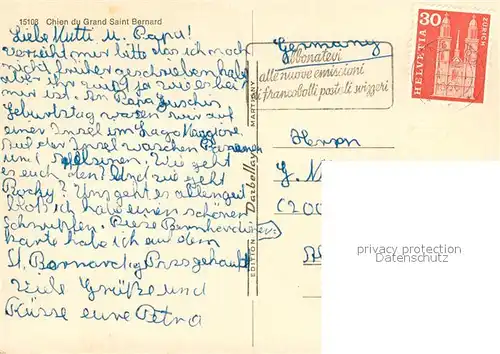 15108 Chien du Grand Saint Bernard
Liebe Mutti u. Papa!
verzeiht mir bitte das ich noch
nicht früher geschrieben habe
aber ihr wußt ja wie es bei
mir ist. An Papa
Geburtstag waren wir auf
einer Insel im Lago Maggiore
Auf der Insel wachsen Bananen
und Apfelsinen. Wie geht
es euch den? Und wie geht
Rocky? Uns geht es allen gut
bloß ich habe einen schönen
Schnupfen. Diese Bernhardiner
karte habe ich auf dem
St. Bernard gekauft
Viele Grüße und
Küsse eure Petra
EDITION Darbellay MARTIGNY
Germany
Abbonatevi
alle nuove emissioni
di francobolli postali svizzeri
30
HELVETIA
ZÜRICH
Herrn
G.
privacy protection
Datenschutz